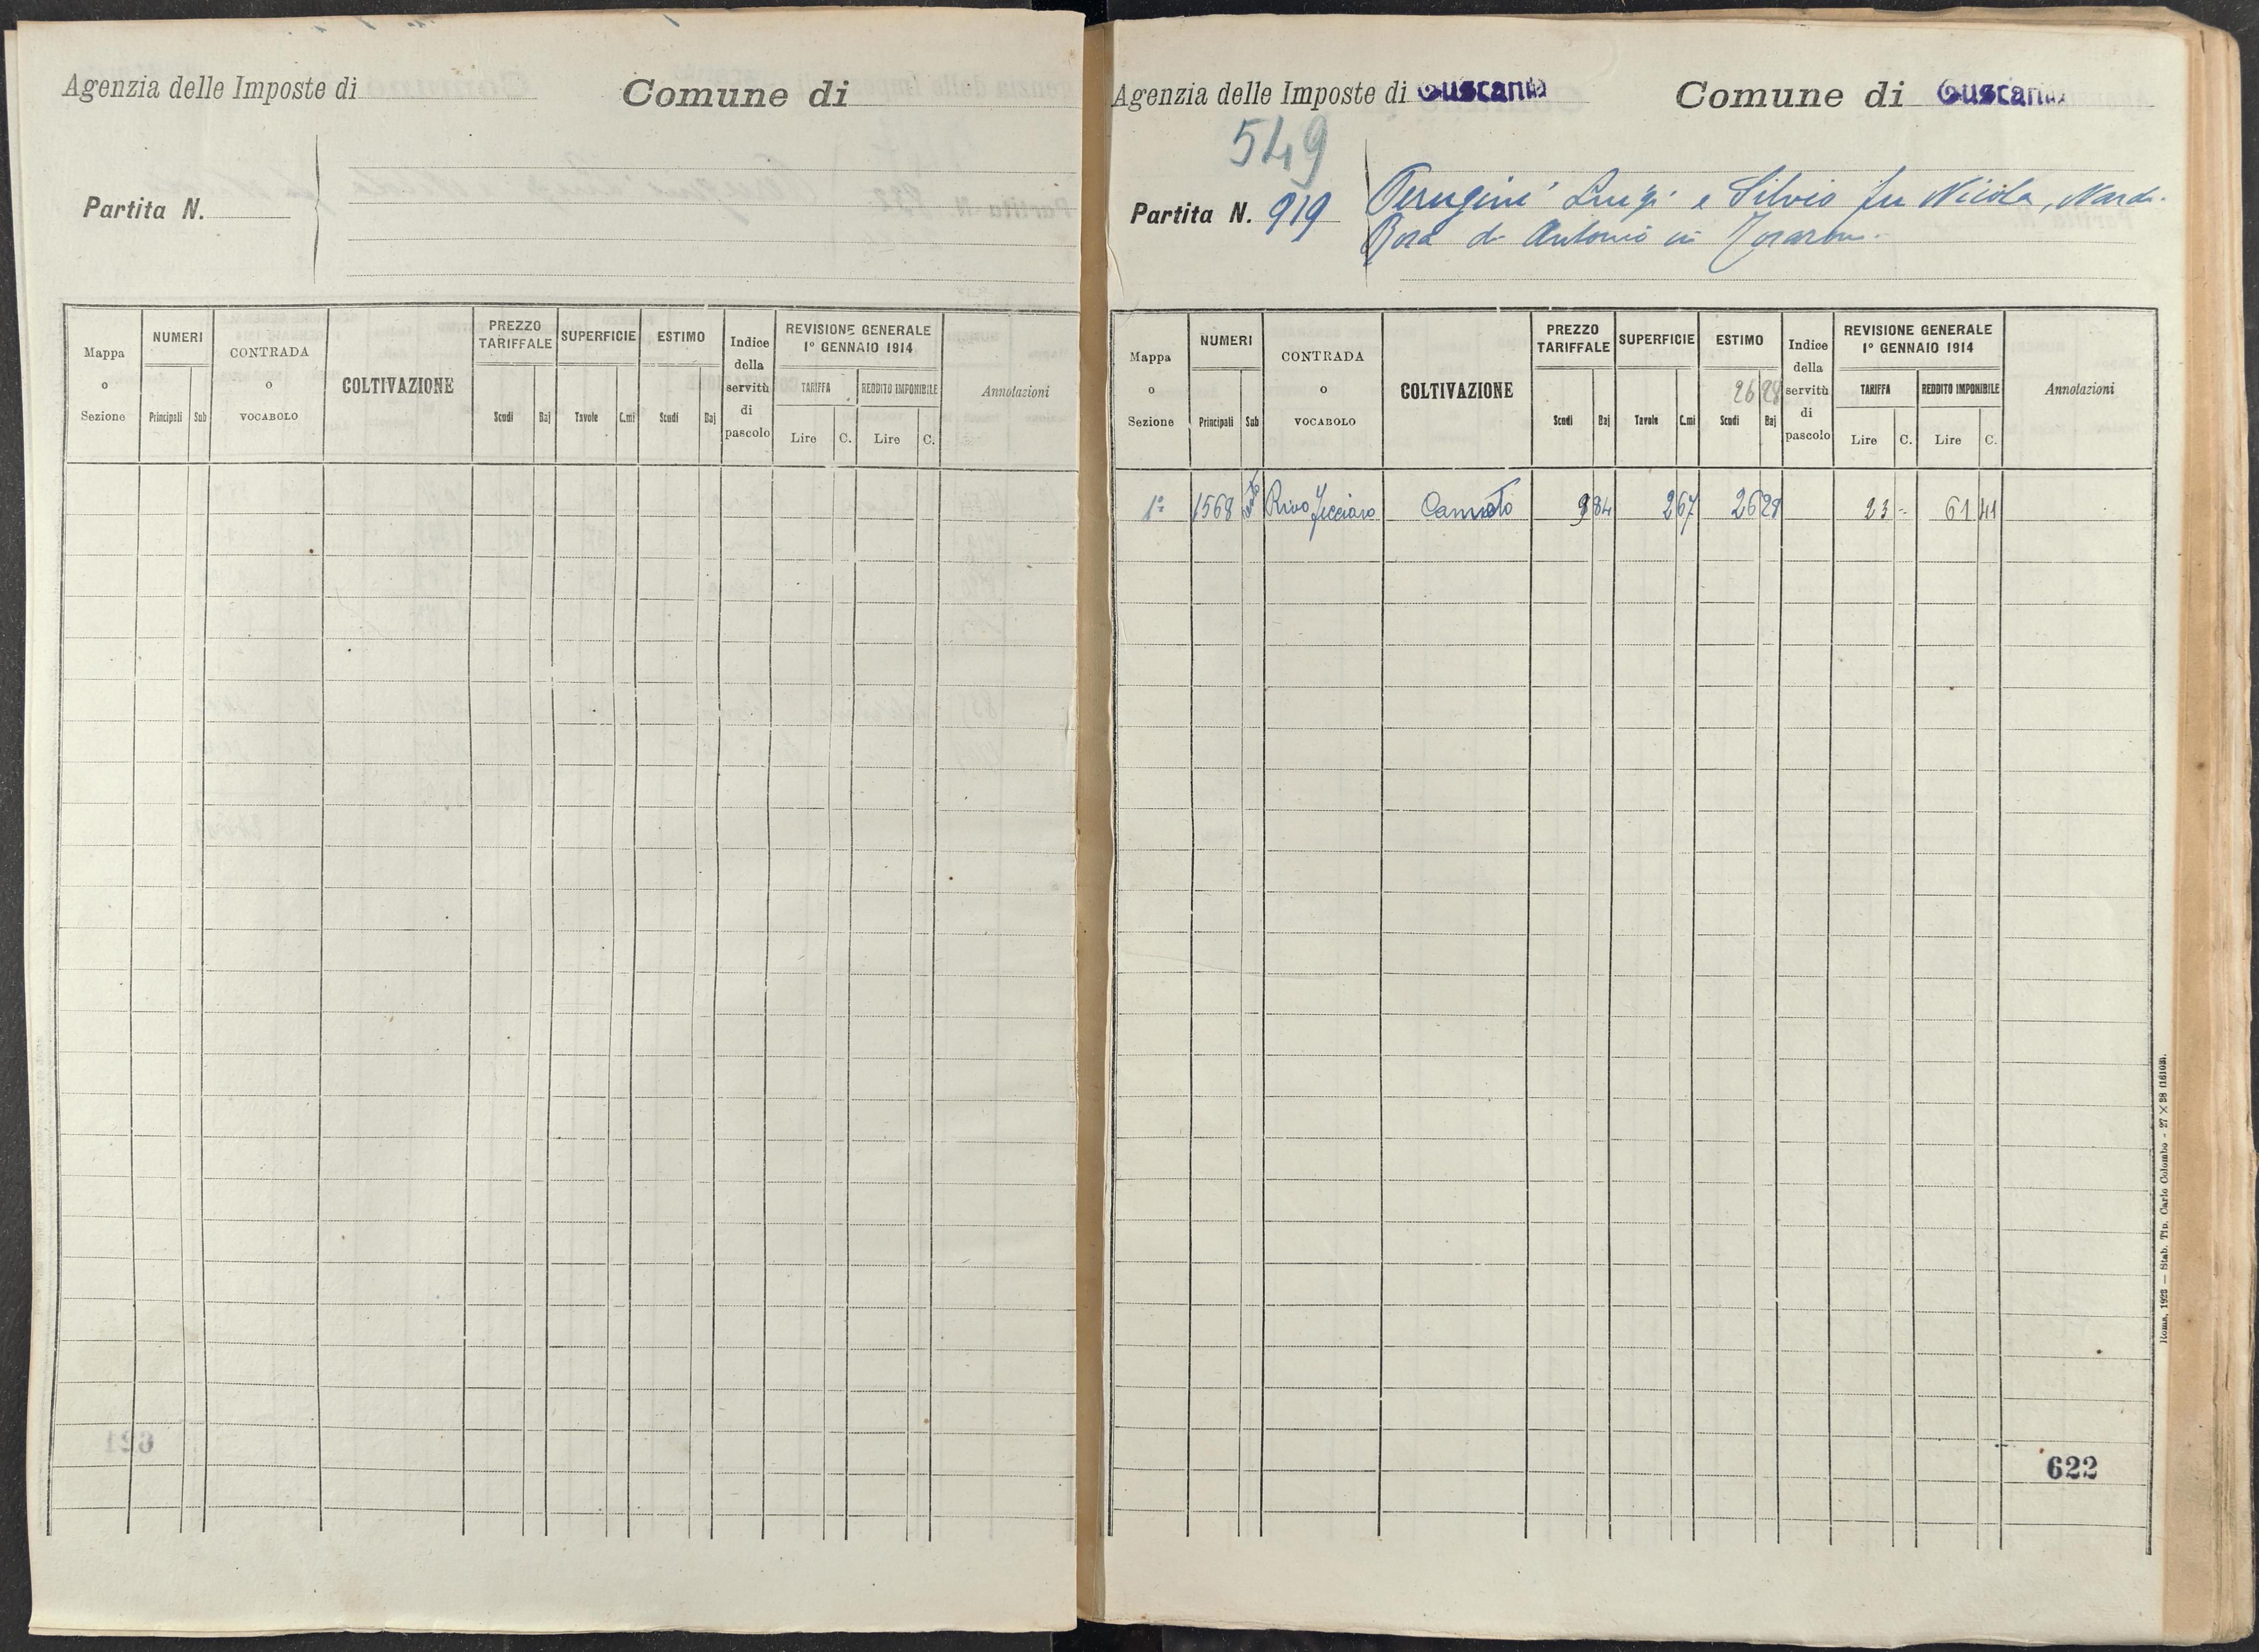 Agenzia delle Imposte di
Comune di
Partita N.
Mappa o Sezione
NUMERI
Principali Sub
CONTRADA o VOCABOLO
COLTIVAZIONE
PREZZO TARIFFALE
Scudi Baj
SUPERFICIE
Tavole C.mi
ESTIMO
Scudi Baj
Indice della servitù di pascolo
REVISIONE GENERALE
1º GENNAIO 1914
TARIFFA
Lire C.
REDDITO IMPONIBILE
Lire C.
Annotazioni
621
Agenzia delle Imposte di Tuscania
Comune di Tuscania
549
Partita N. 919
Perugini Luigi e Silvio fu Nicola, Nardi
Rosa di Antonio in
Mappa o Sezione
NUMERI
Principali Sub
CONTRADA o VOCABOLO
COLTIVAZIONE
PREZZO TARIFFALE
Scudi Baj
SUPERFICIE
Tavole C.mi
ESTIMO
26 28
Scudi Baj
Indice della servitù di pascolo
REVISIONE GENERALE
1º GENNAIO 1914
TARIFFA
Lire C.
REDDITO IMPONIBILE
Lire C.
Annotazioni
1ª 1568 Rivo Canneto 9 84 2 67 26 28 23 - 61 41
622
Roma, 1928 — Stab. Tip. Carlo Colombo - 27 X 38 (16103).